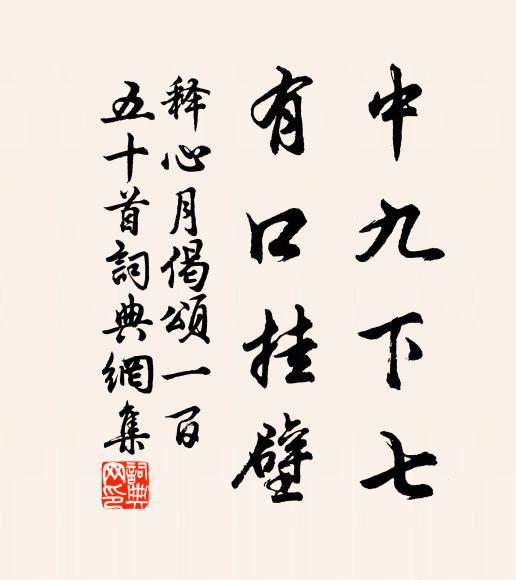 中九下七
有口挂壁
释心月偈頌一百
五十首詞典網集
詞典網印